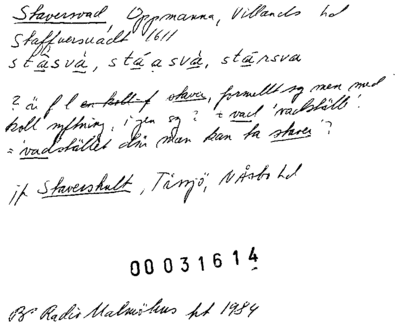 Staversvad Oppmanna, Villands hd
Staffversuadt 1611
stāsvà, stáạsvà, stārsva
? ä f l en koll f staver, formellt sg men med
koll syftning, i gen sg? + vad 'vadställe'.
= 'vadstället där man kan ta staver'?
jf Stavershult, Tåssjö, NÅsbo hd
00031614
Br Radio Malmöhus ht 1984